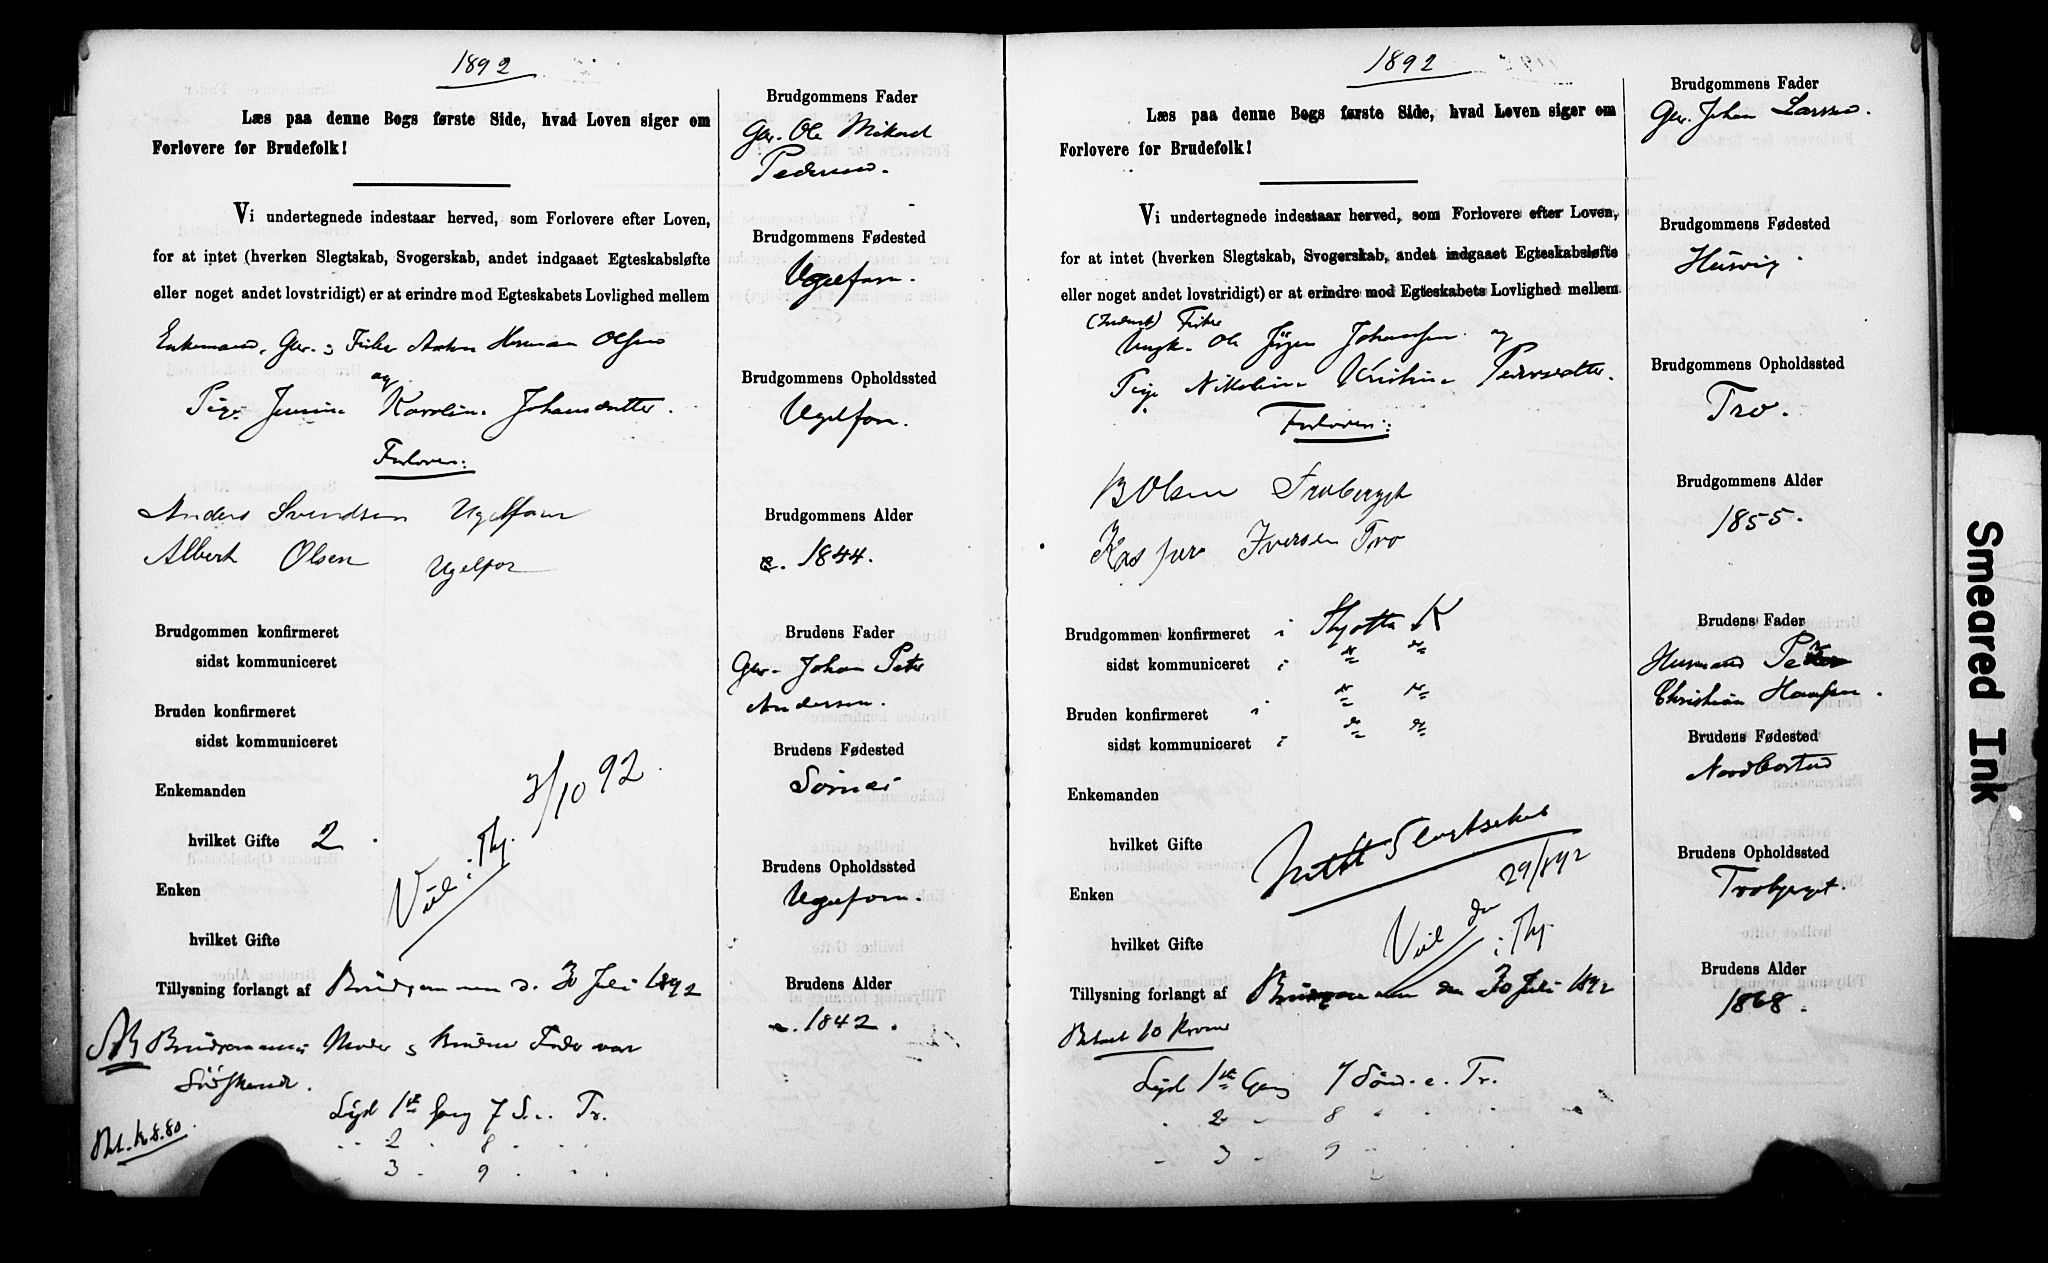 1892
Læs paa denne Bogs første Side, hvad Loven siger om
Forlovere for Brudefolk!
Vi undertegnede indestaar herved, som Forlovere efter Loven,
for at intet (hverken Slegtskab, Svogerskab, andet indgaaet Egteskabsløfte
eller noget andet lovstridigt) er at erindre mod Egteskabets Lovlighed mellem
Enkemand, Gbr. Fisker Anton Herman Olsen
og
Pige Jensine Karoline Johansdatter.
Forlovere:
Anders Svendsen Ugelforn
Albert Olsen Ugelfor
Brudgommen konfirmeret
sidst kommuniceret
Bruden konfirmeret
sidst kommuniceret
Enkemanden
hvilket Gifte 2.
Enken
hvilket Gifte
Viel. i Thj. 2/10 92.
Tillysning forlangt af Brudgommen d. 30 Juli 1892
NB Brudgommens Moder & Brudens Fader var
Sødskende.
Lyd 1ste Gang 7 S. e. Tr.
2 8
3 9
Bet. K. 8.80
Brudgommens Fader
Gbr. Ole Mikael
Pedersen.
Brudgommens Fødested
Ugelforn.
Brudgommens Opholdssted
Ugelforn.
Brudgommens Alder
1844.
Brudens Fader
Gbr. Johan Peter
Andersen.
Brudens Fødested
Sørnes
Brudens Opholdssted
Ugelforn.
Brudens Alder
1842.
1892
Læs paa denne Bogs første Side, hvad Loven siger om
Forlovere for Brudefolk!
Vi undertegnede indestaar herved, som Forlovere efter Loven,
for at intet (hverken Slegtskab, Svogerskab, andet indgaaet Egteskabsløfte
eller noget andet lovstridigt) er at erindre mod Egteskabets Lovlighed mellem
Fisker
Ungk. Ole Jørgen Johansen og
Pige Nikoline Kristine Pedersdatter.
Forlovere:
B Olsen Trobergt
Kasper Iversen Tro
Brudgommen konfirmeret i Thjotta K
sidst kommuniceret i " "
Bruden konfirmeret i " "
sidst kommuniceret i " "
Enkemanden
hvilket Gifte
Intet Slegtskab
Enken
hvilket Gifte
Viel i Thj. 29/8 92
Tillysning forlangt af Brudgommen den 30 Juli 1892
Betalt 10 Kroner
Lyd 1ste Gang 7 Sønd. e. Tr.
2 8
3 9
Brudgommens Fader
Gbr. Johan Larsen.
Brudgommens Fødested
Husvig.
Brudgommens Opholdssted
Tro.
Brudgommens Alder
1855.
Brudens Fader
Husmand Peder
Christian Hansen.
Brudens Fødested
Nordbostad
Brudens Opholdssted
Trobjerget.
Brudens Alder
1868.
Smeared Ink